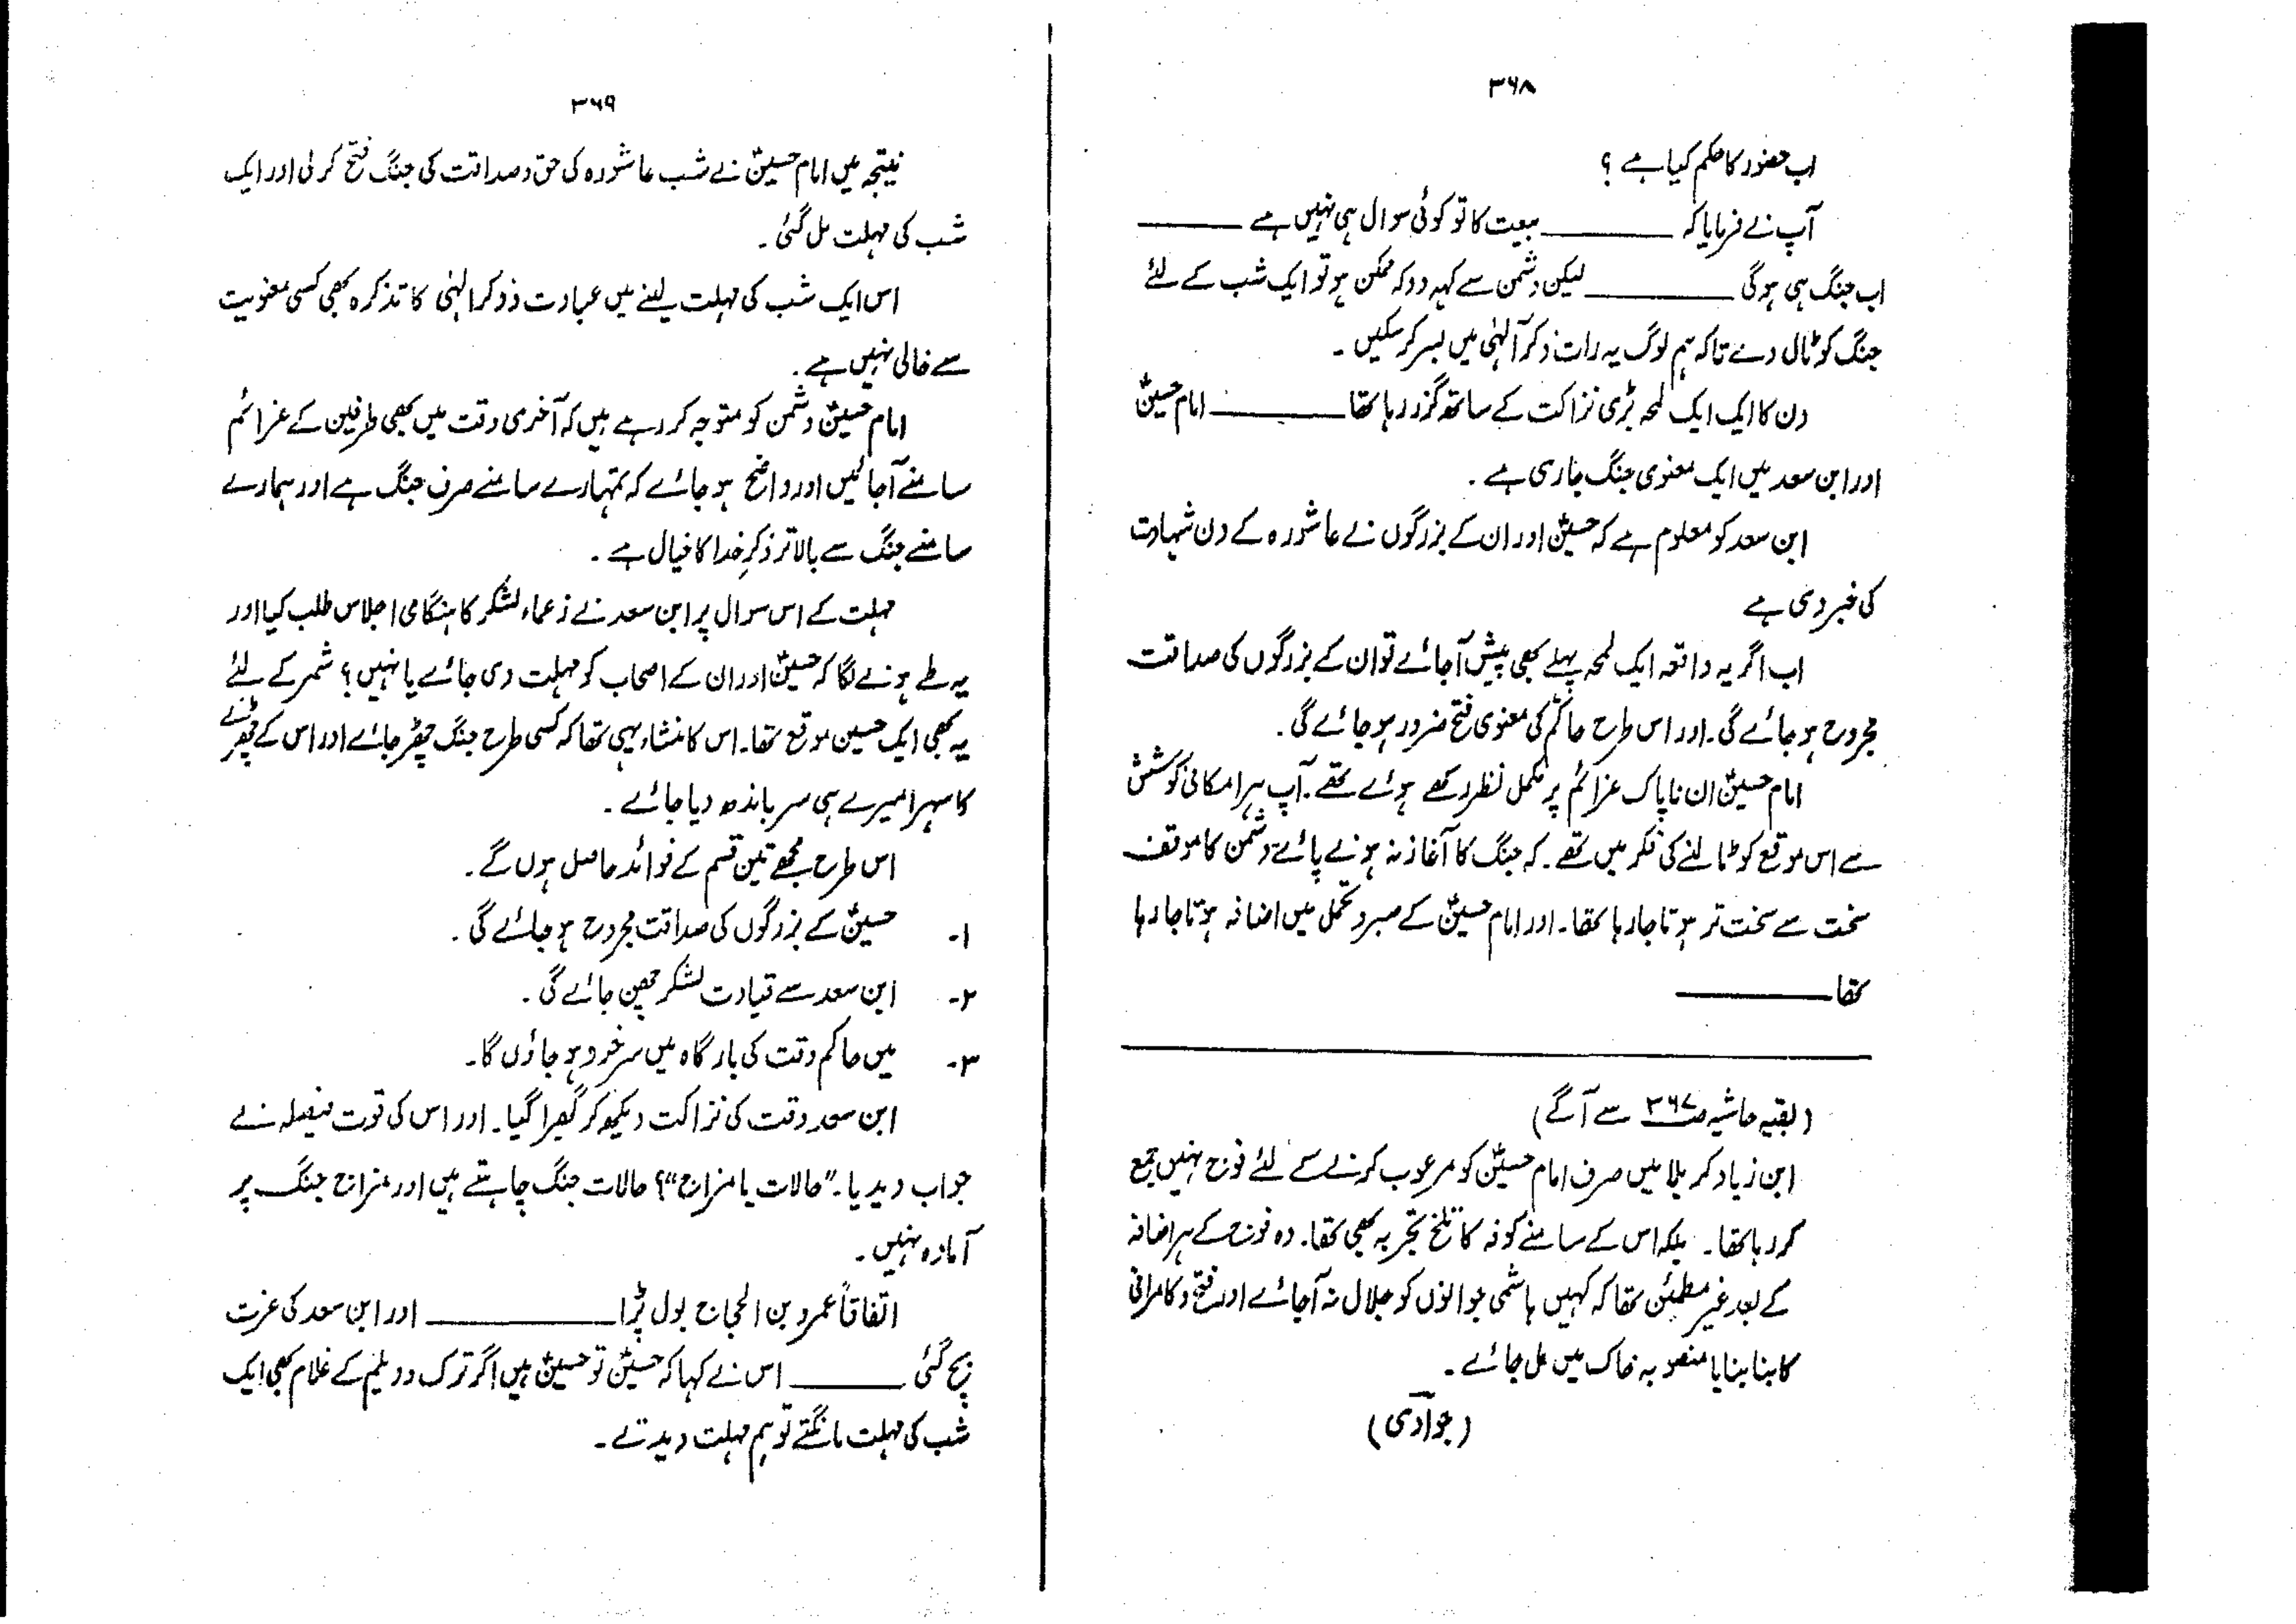 ۳۶۸
اب حضور کا حکم کیا ہے ؟
آپ نے فرمایا کہ ـــــــــ بیعت کا تو کوئی سوال ہی نہیں ہے ـــــــــ
اب جنگ ہی ہوگی ـــــــــ لیکن دشمن سے کہہ دو کہ ممکن ہو تو ایک شب کے لئے
جنگ کو ٹال دے تاکہ ہم لوگ یہ رات ذکر آلہٰی میں بسر کر سکیں ۔
دن کا ایک ایک لمحہ بڑی نزاکت کے ساتھ گزر رہا تھا ـــــــــ امام حسینؑ
اور ابن سعد میں ایک معنوی جنگ جاری ہے ۔
ابن سعد کو معلوم ہے کہ حسینؑ اور ان کے بزرگوں نے عاشورہ کے دن شہادت
کی خبر دی ہے
اب اگر یہ واقعہ ایک لمحہ پہلے بھی پیش آجائے تو ان کے بزرگوں کی صداقت
مجروح ہو جائے گی ۔ اور اس طرح حاکم کی معنوی فتح ضرور ہو جائے گی ۔
امام حسینؑ ان ناپاک عزائم پر مکمل نظر رکھے ہوئے تھے ۔ آپ ہر امکانی کوشش
سے اس موقع کو ٹالنے کی فکر میں تھے ۔ کہ جنگ کا آغاز نہ ہونے پائے دشمن کا موقف
سخت سے سخت تر ہوتا جا رہا تھا ۔ اور امام حسینؑ کے صبر و تحمل میں اضافہ ہوتا جا رہا
تھا ـــــــــ
(بقیہ حاشیہ ص۳۶۷ سے آگے)
ابن زیاد کربلا میں صرف امام حسینؑ کو مرعوب کرنے کے لئے فوج نہیں جمع
کر رہا تھا ۔ بلکہ اس کے سامنے کوفہ کا تلخ تجربہ بھی تھا ۔ وہ فوج کے ہر اضافہ
کے بعد غیر مطمئن تھا کہ کہیں ہاشمی جوانوں کو جلال نہ آجائے اور فتح و کامرانی
کا بنا بنایا منصوبہ خاک میں مل جائے ۔
(جوادی)
۳۶۹
نیتجہ میں امام حسینؑ نے شب عاشورہ کی حق و صداقت کی جنگ فتح کرلی اور ایک
شب کی مہلت مل گئی ۔
اس ایک شب کی مہلت لینے میں عبادت و ذکر الہٰی کا تذکرہ بھی کسی معنویت
سے خالی نہیں ہے ۔
امام حسینؑ دشمن کو متوجہ کر رہے ہیں کہ آخری وقت میں بھی طرفین کے عزائم
سامنے آجائیں اور واضح ہو جائے کہ تمہارے سامنے صرف جنگ ہے اور ہمارے
سامنے جنگ سے بالاتر ذکرِ خدا کا خیال ہے ۔
مہلت کے اس سوال پر ابن سعد نے زعماء لشکر کا ہنگامی اجلاس طلب کیا اور
یہ طے ہونے لگا کہ حسینؑ اور ان کے اصحاب کو مہلت دی جائے یا نہیں ؟ شمر کے لئے
یہ بھی ایک حسین موقع تھا ۔ اس کا منشاء یہی تھا کہ کسی طرح جنگ چھڑ جائے اور اس کے چھڑنے
کا سہرا میرے ہی سر باندھ دیا جائے ۔
اس طرح مجھے تین قسم کے فوائد حاصل ہوں گے ۔
۱- حسینؑ کے بزرگوں کی صداقت مجروح ہو جائے گی ۔
۲- ابن سعد سے قیادت لشکر چھن جائے گی ۔
۳- میں حاکم وقت کی بارگاہ میں سرخرو ہو جاؤں گا ۔
ابن سعد وقت کی نزاکت دیکھ کر گھبرا گیا ۔ اور اس کی قوت فیصلہ نے
جواب دیدیا ۔ "حالات یا مزاج"؟ حالات جنگ چاہتے ہیں اور مزاج جنگ پر
آمادہ نہیں ۔
اتفاقاً عمرو بن الحجاج بول پڑا ـــــــــ اور ابن سعد کی عزت
بچ گئی ـــــــــ اس نے کہا کہ حسینؑ تو حسینؑ ہیں اگر ترک و دیلم کے غلام بھی ایک
شب کی مہلت مانگتے تو ہم مہلت دیدتے ۔